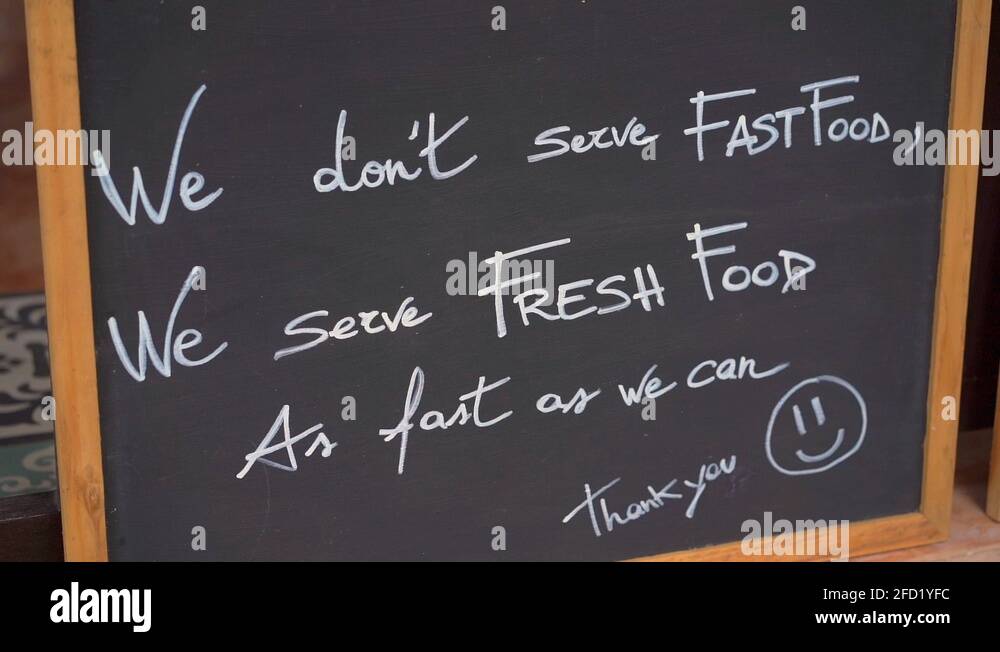 We don't serve FAST FOOD,
We serve FRESH FOOD
As fast as we can
Thank you
alamy
Image ID: 2FD1YFC
www.alamy.com